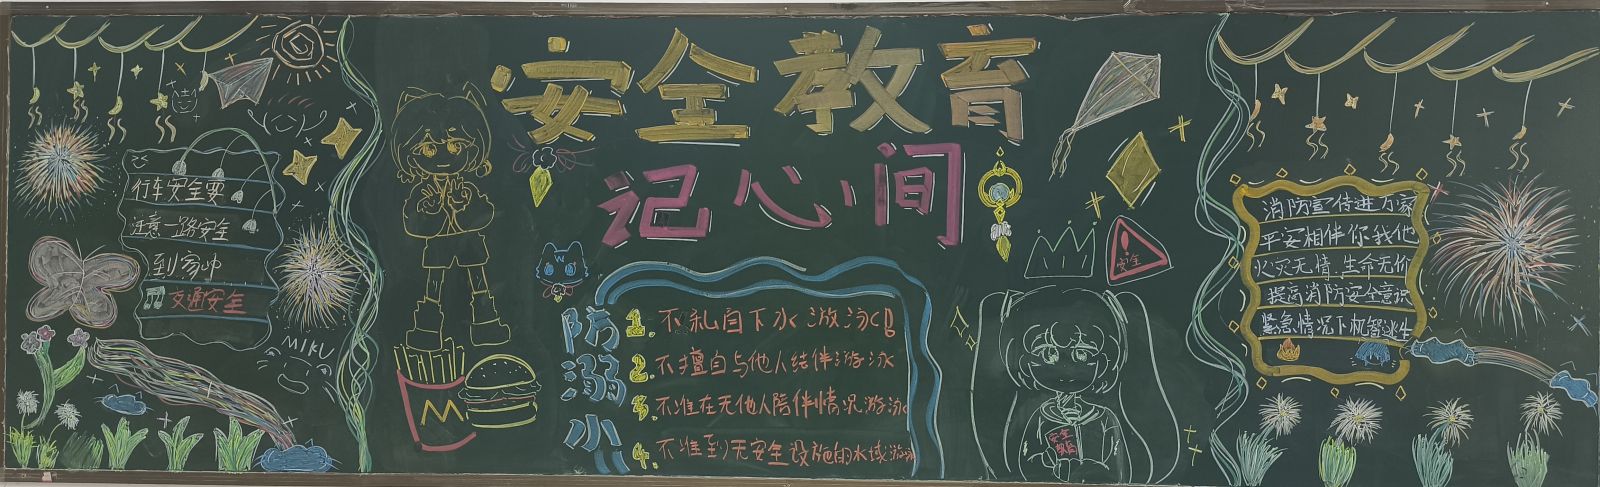 安全教育
记心间
行车安全要
注意一路安全
到家中
交通安全
MIKU
防溺水
1. 不私自下水游泳!
2. 不擅自与他人结伴游泳
3. 不准在无他人陪伴情况游泳
4. 不准到无安全设施的水域游泳
安全
安全
消防宣传进万家
平安相伴你我他
火灾无情 生命无价
提高消防安全意识
紧急情况下机智逃生